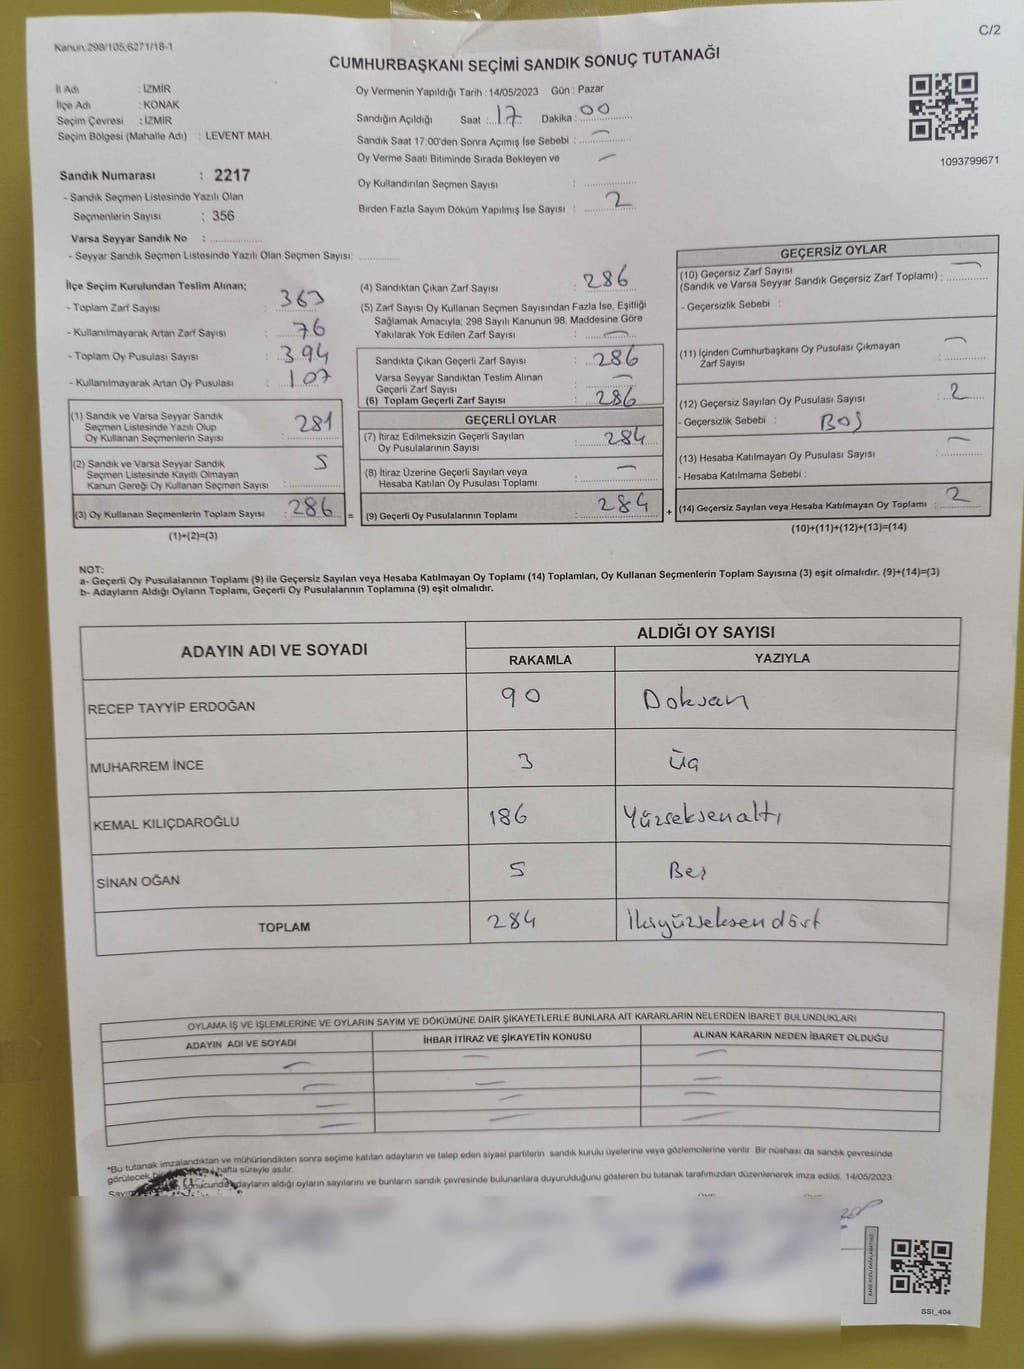 Kanun;298/105;6271/18-1
C/2
CUMHURBAŞKANI SEÇİMİ SANDIK SONUÇ TUTANAĞI
İl Adı : İZMİR
İlçe Adı : KONAK
Seçim Çevresi : İZMİR
Seçim Bölgesi (Mahalle Adı) : LEVENT MAH.
Oy Vermenin Yapıldığı Tarih : 14/05/2023 Gün : Pazar
Sandığın Açıldığı Saat : 17 Dakika : 00
Sandık Saat 17:00'den Sonra Açımış İse Sebebi : —
Oy Verme Saati Bitiminde Sırada Bekleyen ve —
Oy Kullandırılan Seçmen Sayısı :
Birden Fazla Sayım Döküm Yapılmış İse Sayısı : 2
1093799671
Sandık Numarası : 2217
- Sandık Seçmen Listesinde Yazılı Olan
Seçmenlerin Sayısı : 356
Varsa Seyyar Sandık No :
- Seyyar Sandık Seçmen Listesinde Yazılı Olan Seçmen Sayısı:
İlçe Seçim Kurulundan Teslim Alınan;
- Toplam Zarf Sayısı : 363
- Kullanılmayarak Artan Zarf Sayısı : 76
- Toplam Oy Pusulası Sayısı : 394
- Kullanılmayarak Artan Oy Pusulası : 107
(1) Sandık ve Varsa Seyyar Sandık
Seçmen Listesinde Yazılı Olup
Oy Kullanan Seçmenlerin Sayısı : 281
(2) Sandık ve Varsa Seyyar Sandık
Seçmen Listesinde Kayıtlı Olmayan
Kanun Gereği Oy Kullanan Seçmen Sayısı : 5
(3) Oy Kullanan Seçmenlerin Toplam Sayısı : 286 =
(1)+(2)=(3)
(4) Sandıktan Çıkan Zarf Sayısı : 286
(5) Zarf Sayısı Oy Kullanan Seçmen Sayısından Fazla İse, Eşitliği
Sağlamak Amacıyla, 298 Sayılı Kanunun 98. Maddesine Göre
Yakılarak Yok Edilen Zarf Sayısı : —
Sandıkta Çıkan Geçerli Zarf Sayısı : 286
Varsa Seyyar Sandıktan Teslim Alınan
Geçerli Zarf Sayısı : —
(6) Toplam Geçerli Zarf Sayısı : 286
GEÇERLİ OYLAR
(7) İtiraz Edilmeksizin Geçerli Sayılan
Oy Pusulalarının Sayısı : 284
(8) İtiraz Üzerine Geçerli Sayılan veya
Hesaba Katılan Oy Pusulası Toplamı : —
(9) Geçerli Oy Pusulalarının Toplamı : 284 +
GEÇERSİZ OYLAR
(10) Geçersiz Zarf Sayısı
(Sandık ve Varsa Seyyar Sandık Geçersiz Zarf Toplamı) : —
- Geçersizlik Sebebi :
(11) İçinden Cumhurbaşkanı Oy Pusulası Çıkmayan
Zarf Sayısı : —
(12) Geçersiz Sayılan Oy Pusulası Sayısı : 2
- Geçersizlik Sebebi : BOŞ
(13) Hesaba Katılmayan Oy Pusulası Sayısı : —
- Hesaba Katılmama Sebebi :
(14) Geçersiz Sayılan veya Hesaba Katılmayan Oy Toplamı : 2
(10)+(11)+(12)+(13)=(14)
NOT:
a- Geçerli Oy Pusulalarının Toplamı (9) ile Geçersiz Sayılan veya Hesaba Katılmayan Oy Toplamı (14) Toplamları, Oy Kullanan Seçmenlerin Toplam Sayısına (3) eşit olmalıdır. (9)+(14)=(3)
b- Adayların Aldığı Oyların Toplamı, Geçerli Oy Pusulalarının Toplamına (9) eşit olmalıdır.
ADAYIN ADI VE SOYADI ALDIĞI OY SAYISI
RAKAMLA YAZIYLA
RECEP TAYYİP ERDOĞAN 90 Doksan
MUHARREM İNCE 3 Üç
KEMAL KILIÇDAROĞLU 186 Yüzseksenaltı
SİNAN OĞAN 5 Beş
TOPLAM 284 İkiyüzseksendört
OYLAMA İŞ VE İŞLEMLERİNE VE OYLARIN SAYIM VE DÖKÜMÜNE DAİR ŞİKAYETLERLE BUNLARA AİT KARARLARIN NELERDEN İBARET BULUNDUKLARI
ADAYIN ADI VE SOYADI İHBAR İTİRAZ VE ŞİKAYETİN KONUSU ALINAN KARARIN NEDEN İBARET OLDUĞU
*Bu tutanak imzalandıktan ve mühürlendikten sonra seçime katılan adayların ve talep eden siyasi partilerin sandık kurulu üyelerine veya gözlemcilerine verilir. Bir nüshası da sandık çevresinde
görülecek hafta süreyle asılır.
adayların aldığı oyların sayılarını ve bunların sandık çevresinde bulunanlara duyurulduğunu gösteren bu tutanak tarafımızdan düzenlenerek imza edildi. 14/05/2023
SSI_404